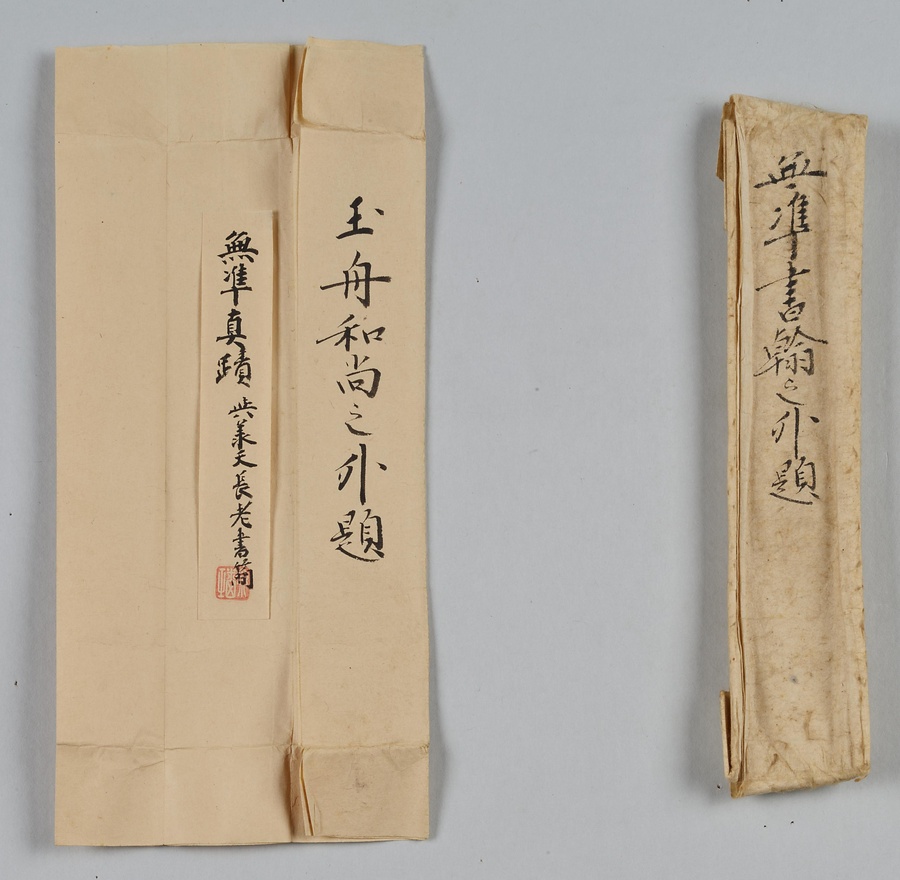 無準書翰之外題
玉舟和尚之外題
無準真蹟 與義天長老書簡